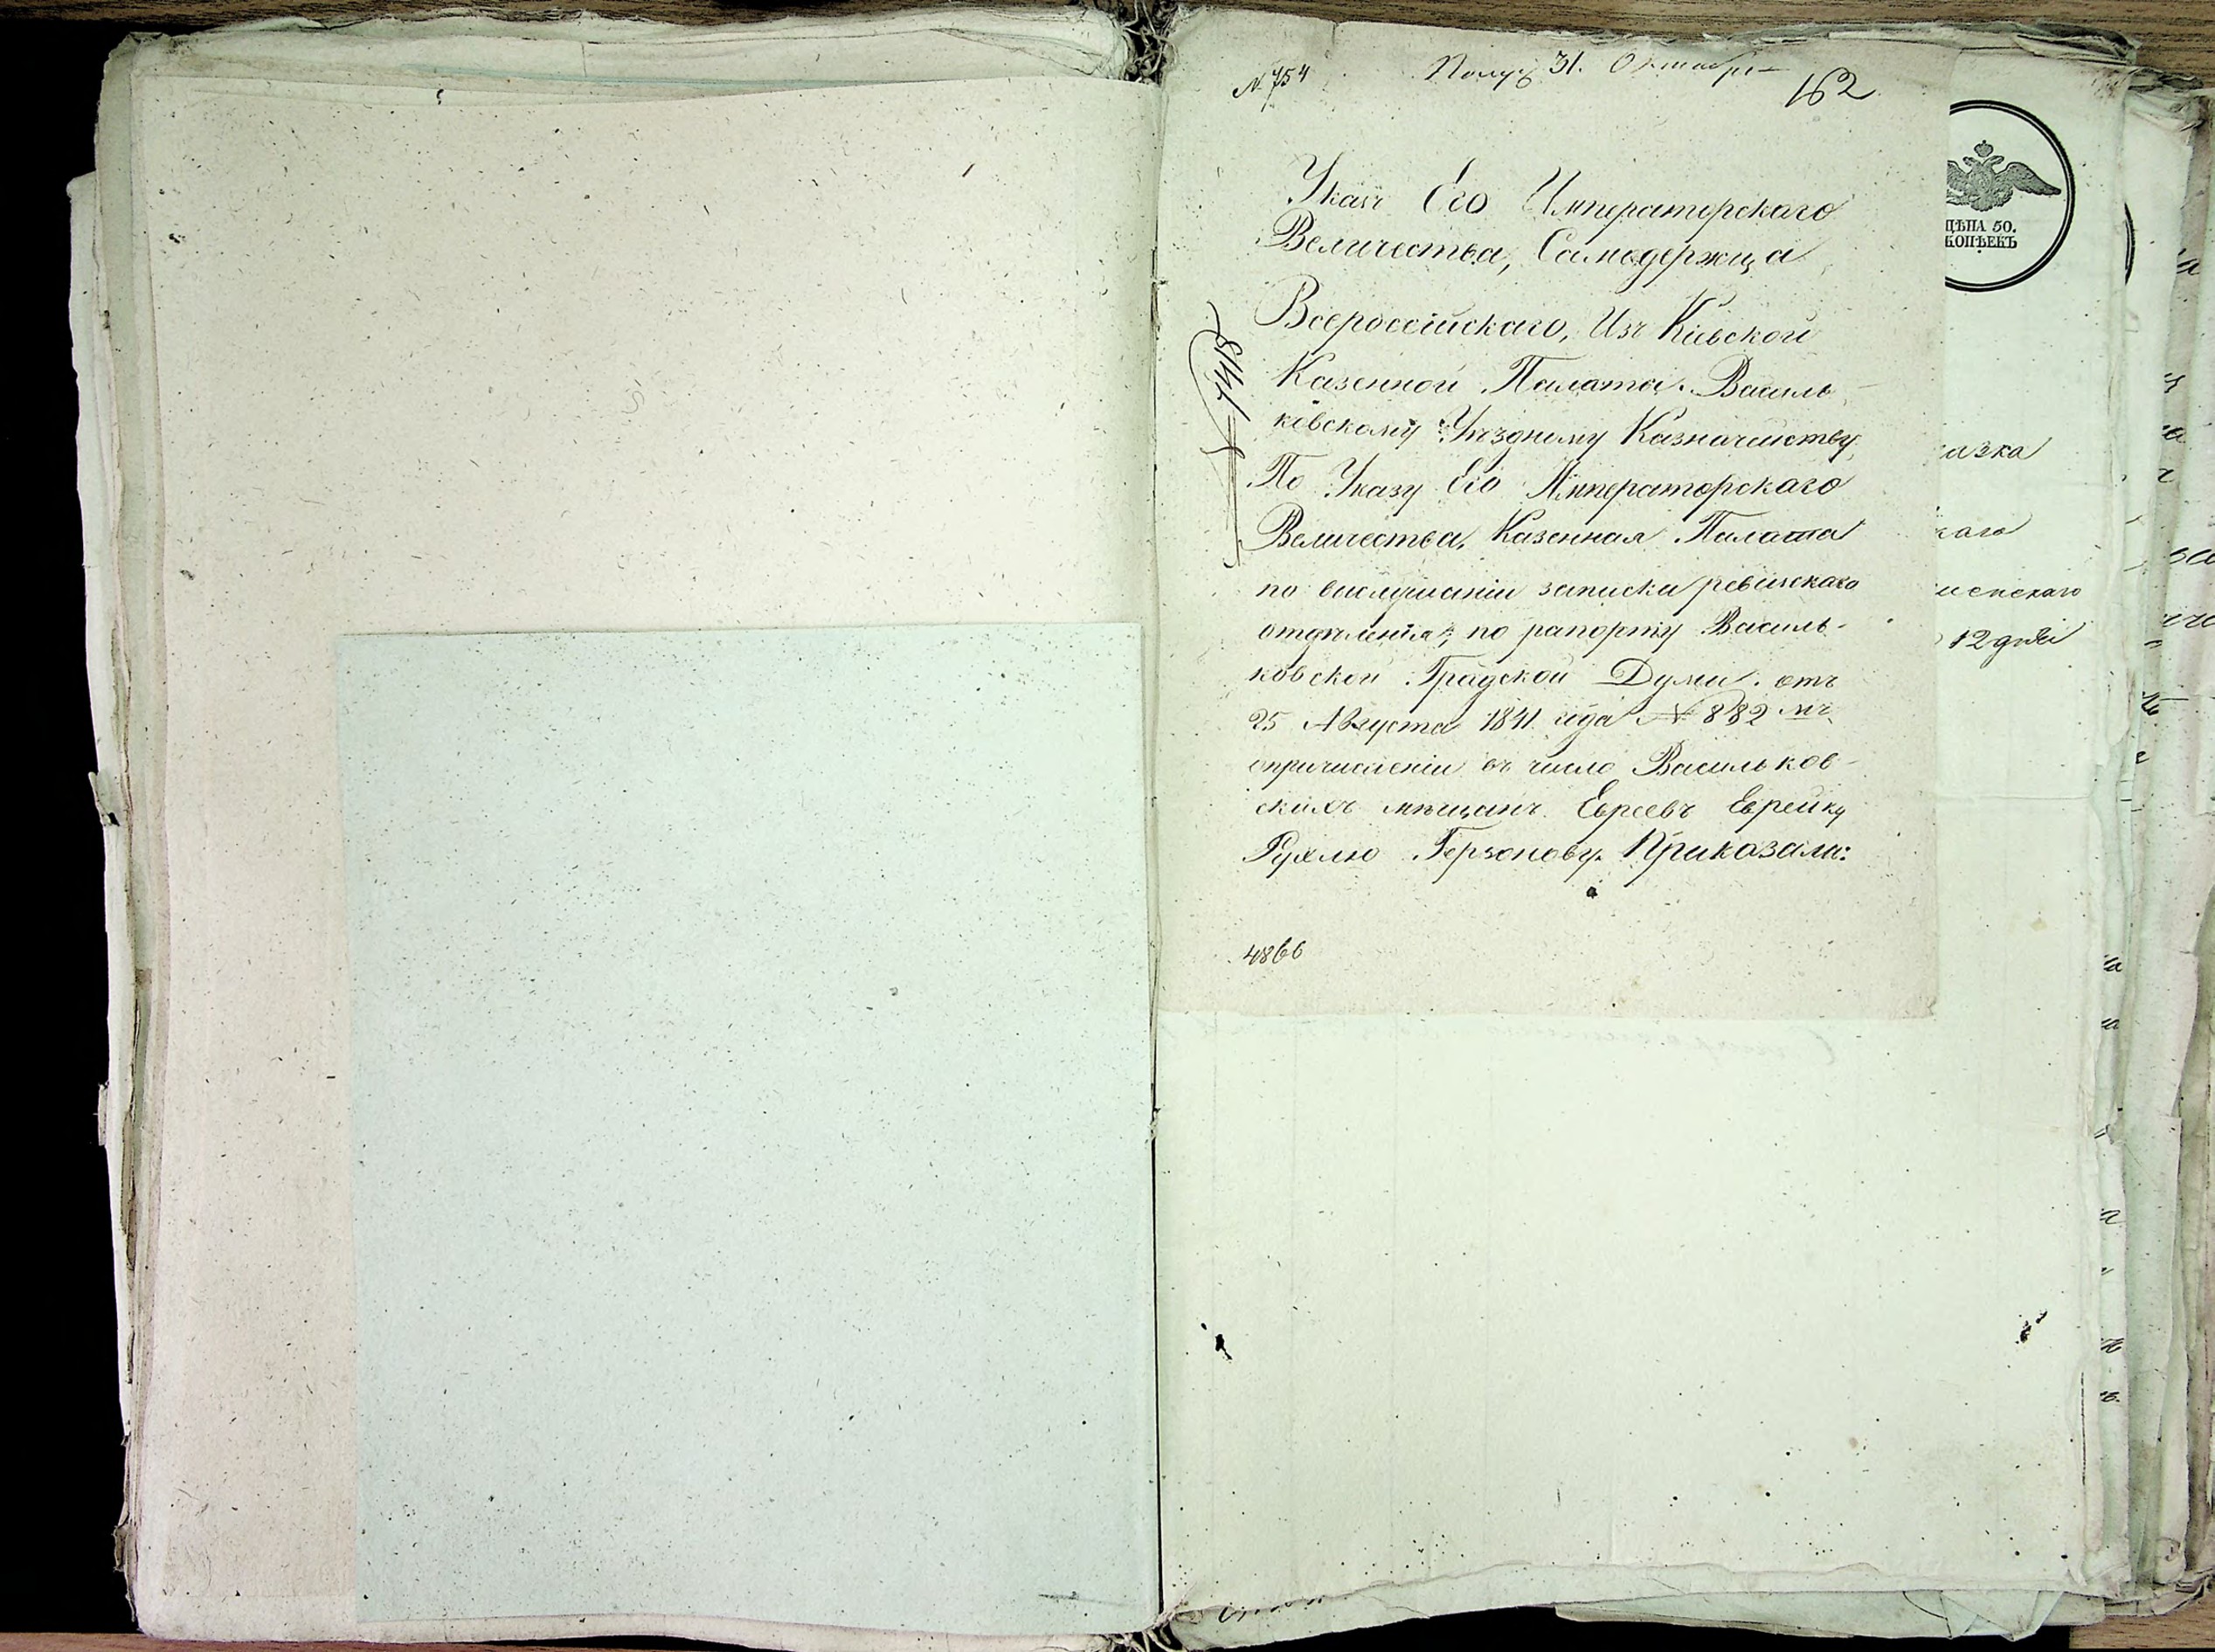 № 754
Получ 31. Октября
162
Указъ Его Императорскаго
Величества, Самодержца
Всероссійскаго, Изъ Кіевской
Казенной Палаты. Василь-
ковскому Уѣздному Казначейству,
По Указу Его Императорскаго
Величества, Казенная Палата
по выслушаніи записки ревизскаго
отдѣленія; по рапорту Василь-
ковской Градской Думы. отъ
25 Августа 1841 года № 882 мъ
опричисленіи въ число Васильков-
скихъ мѣщанъ Евреевъ Еврейку
Рухлю Герзонову. Приказали:
4866
ЦѢНА 50.
КОПѢЕКЪ
азка
каго
12 дня